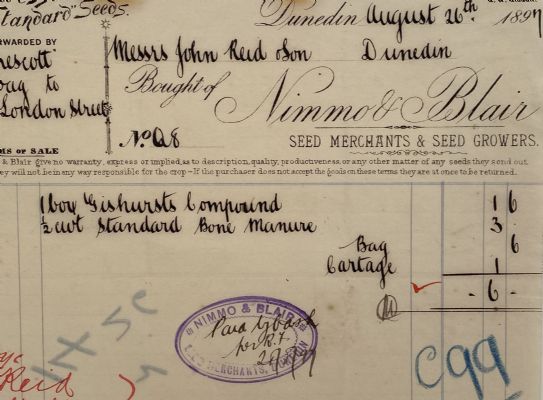 Standard" Seeds.
Dunedin August 26th 1897
FORWARDED BY
Prescott
Messrs John Reid & Son Dunedin
Bag to
London Street
Bought of
Nimmo & Blair
No. Q8
SEED MERCHANTS & SEED GROWERS.
TERMS OF SALE
& Blair give no warranty, express or implied, as to description, quality, productiveness, or any other matter of any seeds they send out.
they will not be in any way responsible for the crop - If the purchaser does not accept the goods on these terms they are at once to be returned.
1 box Gishursts Compound 1 6
½ cwt Standard Bone Manure 3 -
Bag 6
Cartage 1
- 6 -
NIMMO & BLAIR
Paid
MERCHANTS, DUNEDIN
Reid
C99